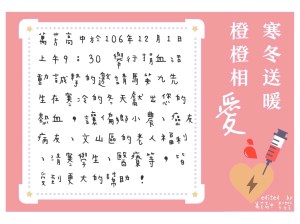 寒冬送暖
橙橙相愛
萬芳高中於106年12月1日
上午9:30 舉行捐血活
動誠摯的邀請馬英九先
生在寒冷的冬天獻出您的
熱血,讓偏鄉小農、癌友
病友、文山區的老人福利
、清寒學生、醫療等,皆
受到更大的幫助!
edited by